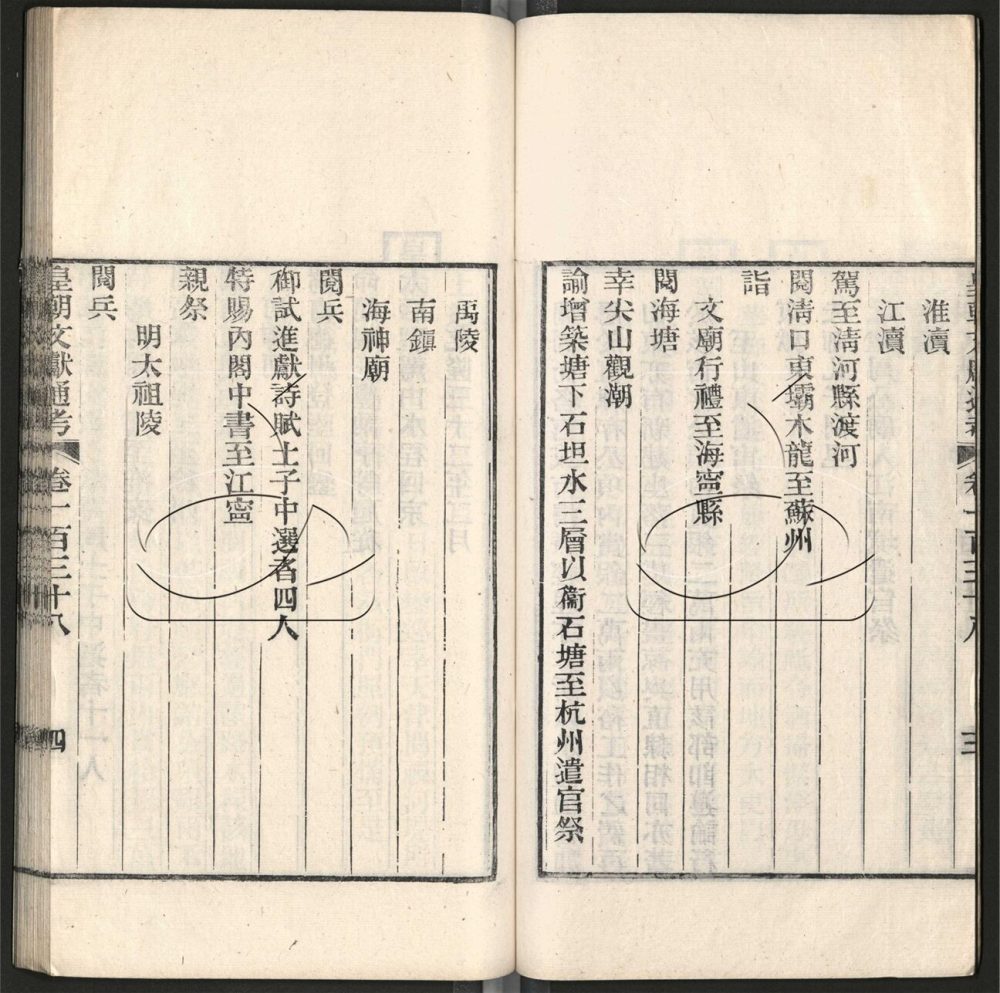 皇朝文獻通考 卷一百三十八 三
淮瀆
江瀆
駕至淸河縣渡河
閱淸口東壩木龍至蘇州
詣
文廟行禮至海寧縣
閱海塘
幸尖山觀潮
諭增築塘下石坦水三層以衞石塘至杭州遣官祭
禹陵
南鎭
海神廟
閱兵
御試進獻詩賦士子中選者四人
特賜內閣中書至江寧
親祭
明太祖陵
閱兵
皇朝文獻通考 卷一百三十八 四